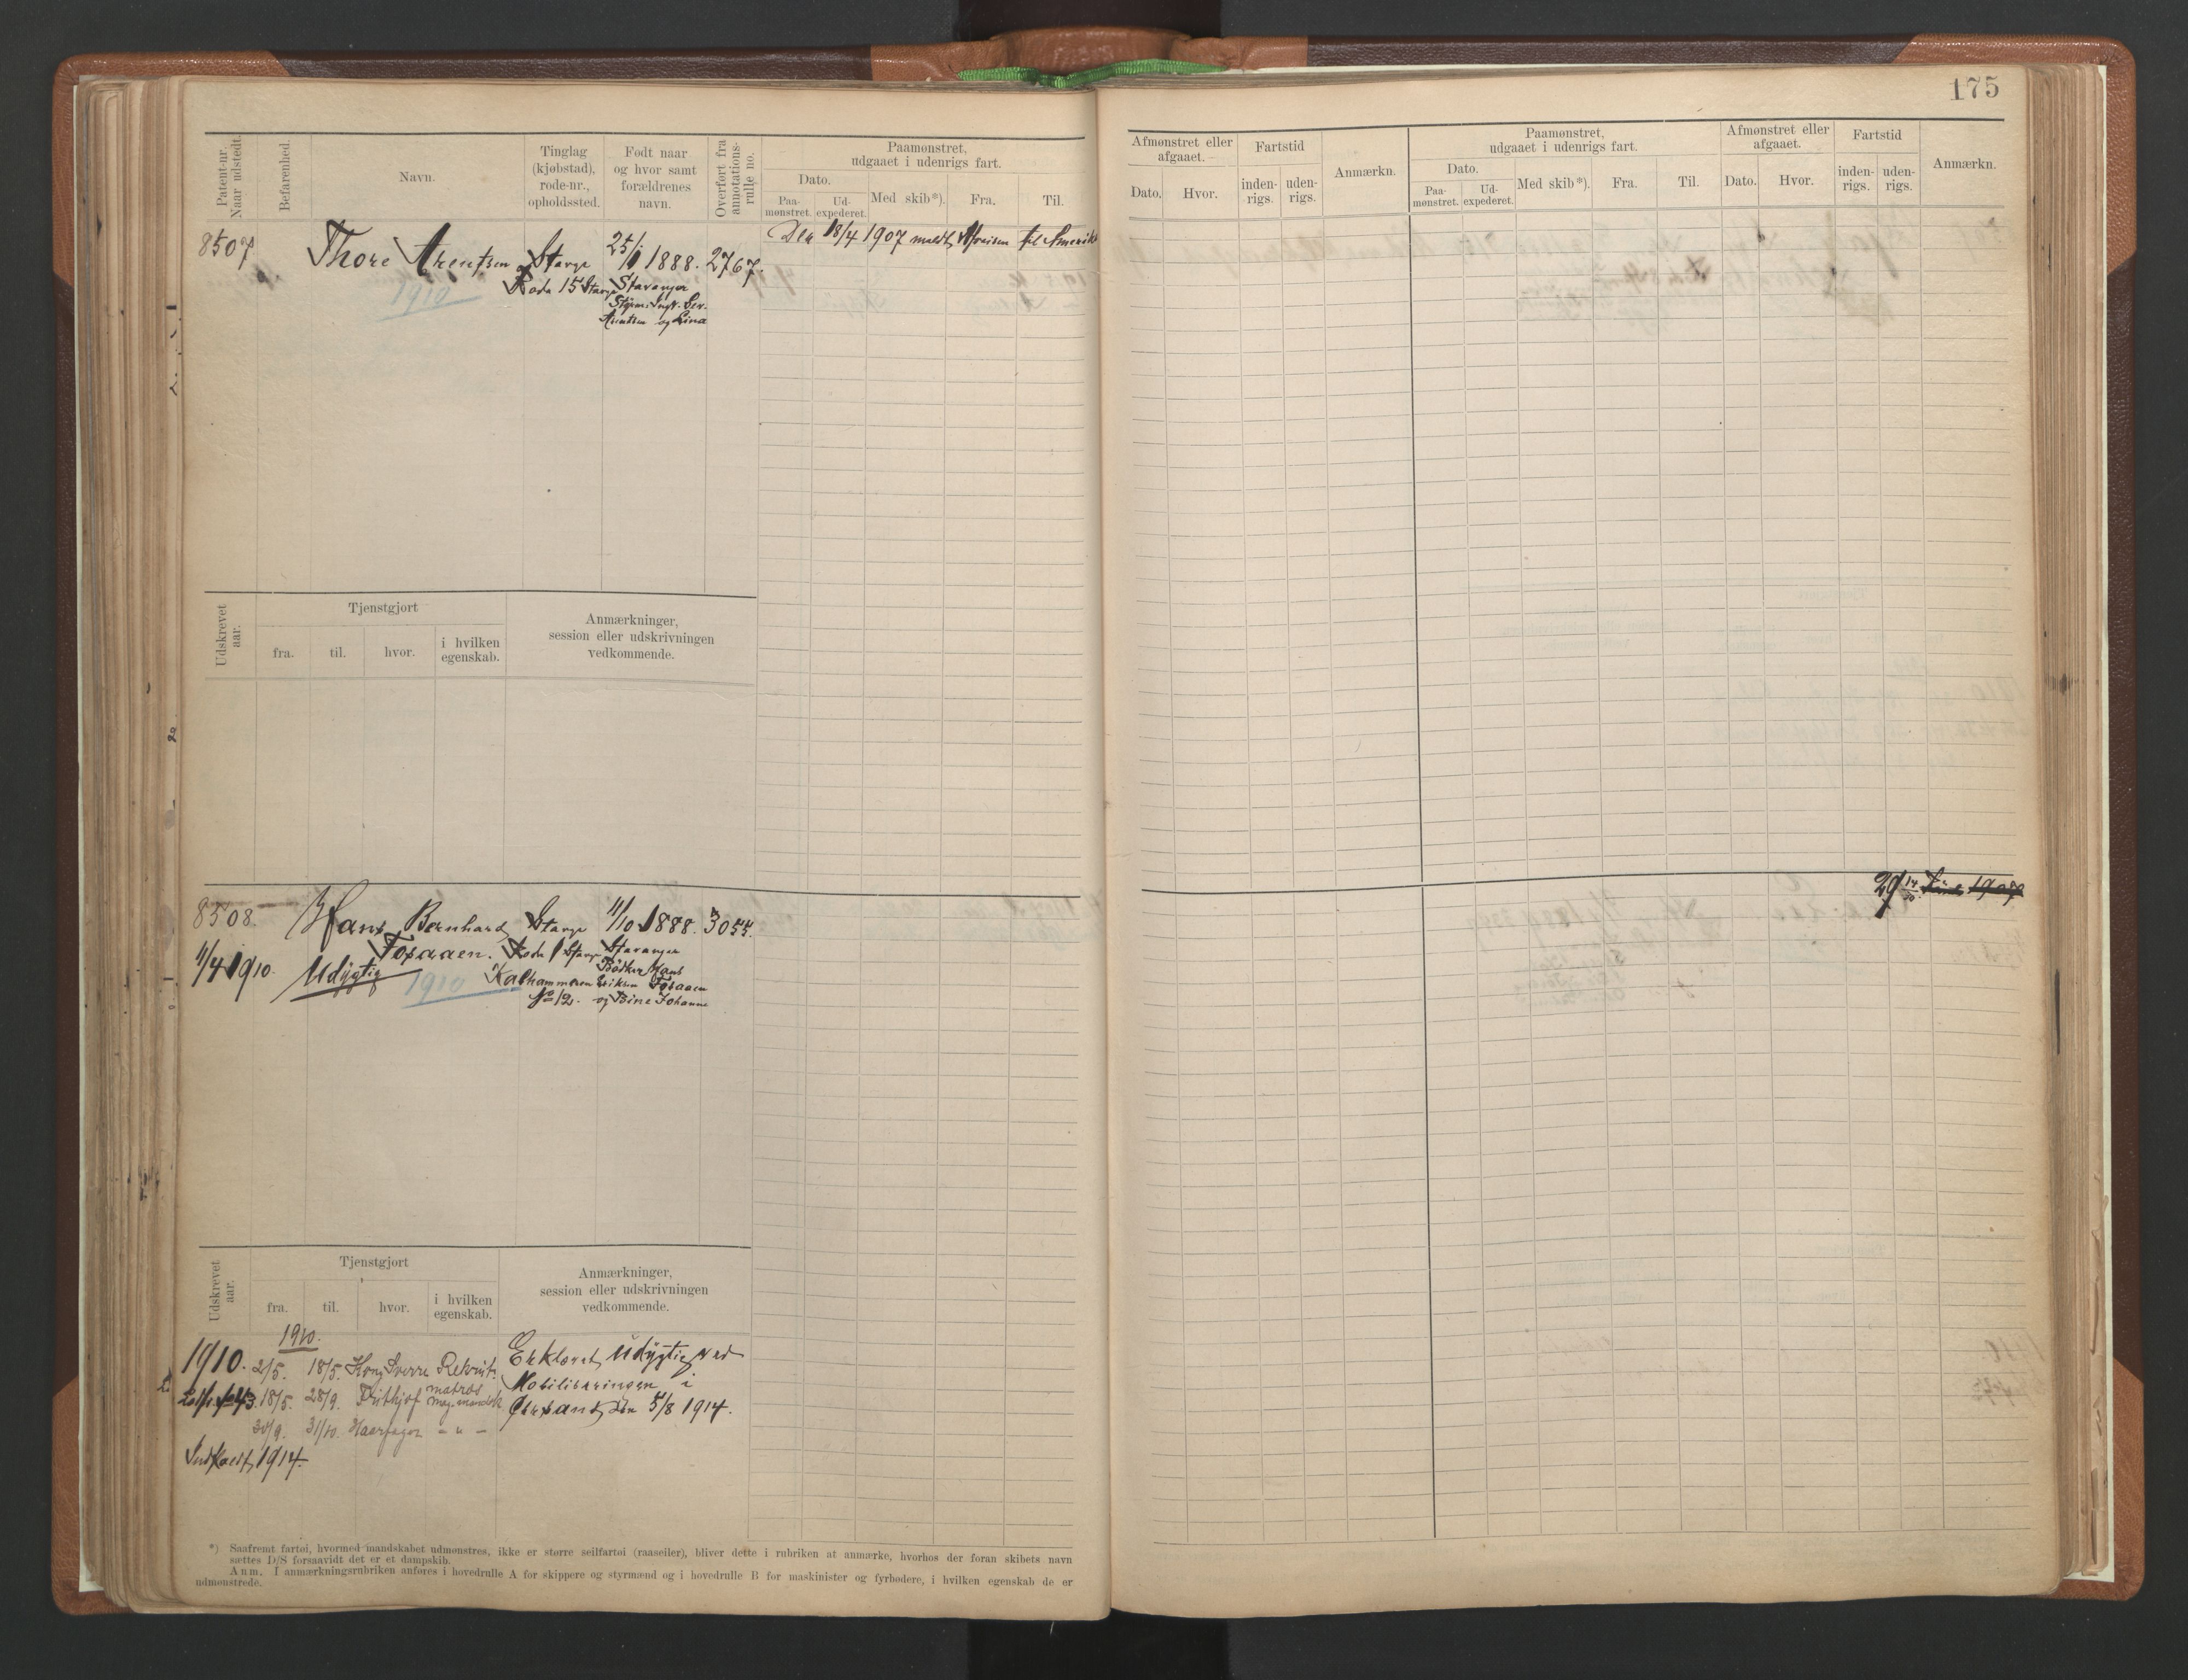 175
Patent-nr. Naar udstedt.
Befarenhed.
Navn.
Tinglag (kjøbstad), rode-nr., opholdssted.
Født naar og hvor samt forældrenes navn.
Overført fra annotations-rulle no.
Paamønstret, udgaaet i udenrigs fart.
Dato.
Paa-mønstret.
Ud-expederet.
Med skib*).
Fra.
Til.
Afmønstret eller afgaaet.
Dato.
Hvor.
Fartstid
inden-rigs.
uden-rigs.
Anmærkn.
Paamønstret, udgaaet i udenrigs fart.
Dato.
Paa-mønstret.
Ud-expederet.
Med skib*).
Fra.
Til.
Afmønstret eller afgaaet.
Dato.
Hvor.
Fartstid
inden-rigs.
uden-rigs.
Anmærkn.
8507
Thore Arentsen
1910
Stavgr
Rode 15 Stavgr
25/1 1888.
Stavanger
og Lina
2767.
Den 18/4 1907 meldt Afreisen til Amerika
Udskrevet aar.
Tjenstgjort
fra.
til.
hvor.
i hvilken egenskab.
Anmærkninger, session eller udskrivningen vedkommende.
8508.
11/4 1910.
Hans Bernhard
Fosaaen.
Udygtig
1910
Stavgr
Rode 1 Stavgr
Kalhammeren
No 12.
11/10 1888.
Stavanger
Bødker Hans
Eriksen Fosaaen
og Bine Johanne
3055.
29 14/10 1907
Udskrevet aar.
Tjenstgjort
fra.
til.
hvor.
i hvilken egenskab.
Anmærkninger, session eller udskrivningen vedkommende.
1910.
1910. 2/5. 18/5. Kong Sverre Rekrut.
18/5. 28/9. Frithjof matros
30/9. 31/10. Haarfager - " -
Indkaldt 1914.
Erklæret Udygtig ved
Mobiliseringen i
Chrsand den 5/8 1914.
*) Saafremt fartøi, hvormed mandskabet udmønstres, ikke er større seilfartøi (raaseiler), bliver dette i rubriken at anmærke, hvorhos der foran skibets navn
sættes D/S forsaavidt det er et dampskib.
Anm. I anmærkningsrubriken anføres i hovedrulle A for skippere og styrmænd og i hovedrulle B for maskinister og fyrbødere, i hvilken egenskab de er
udmønstrede.